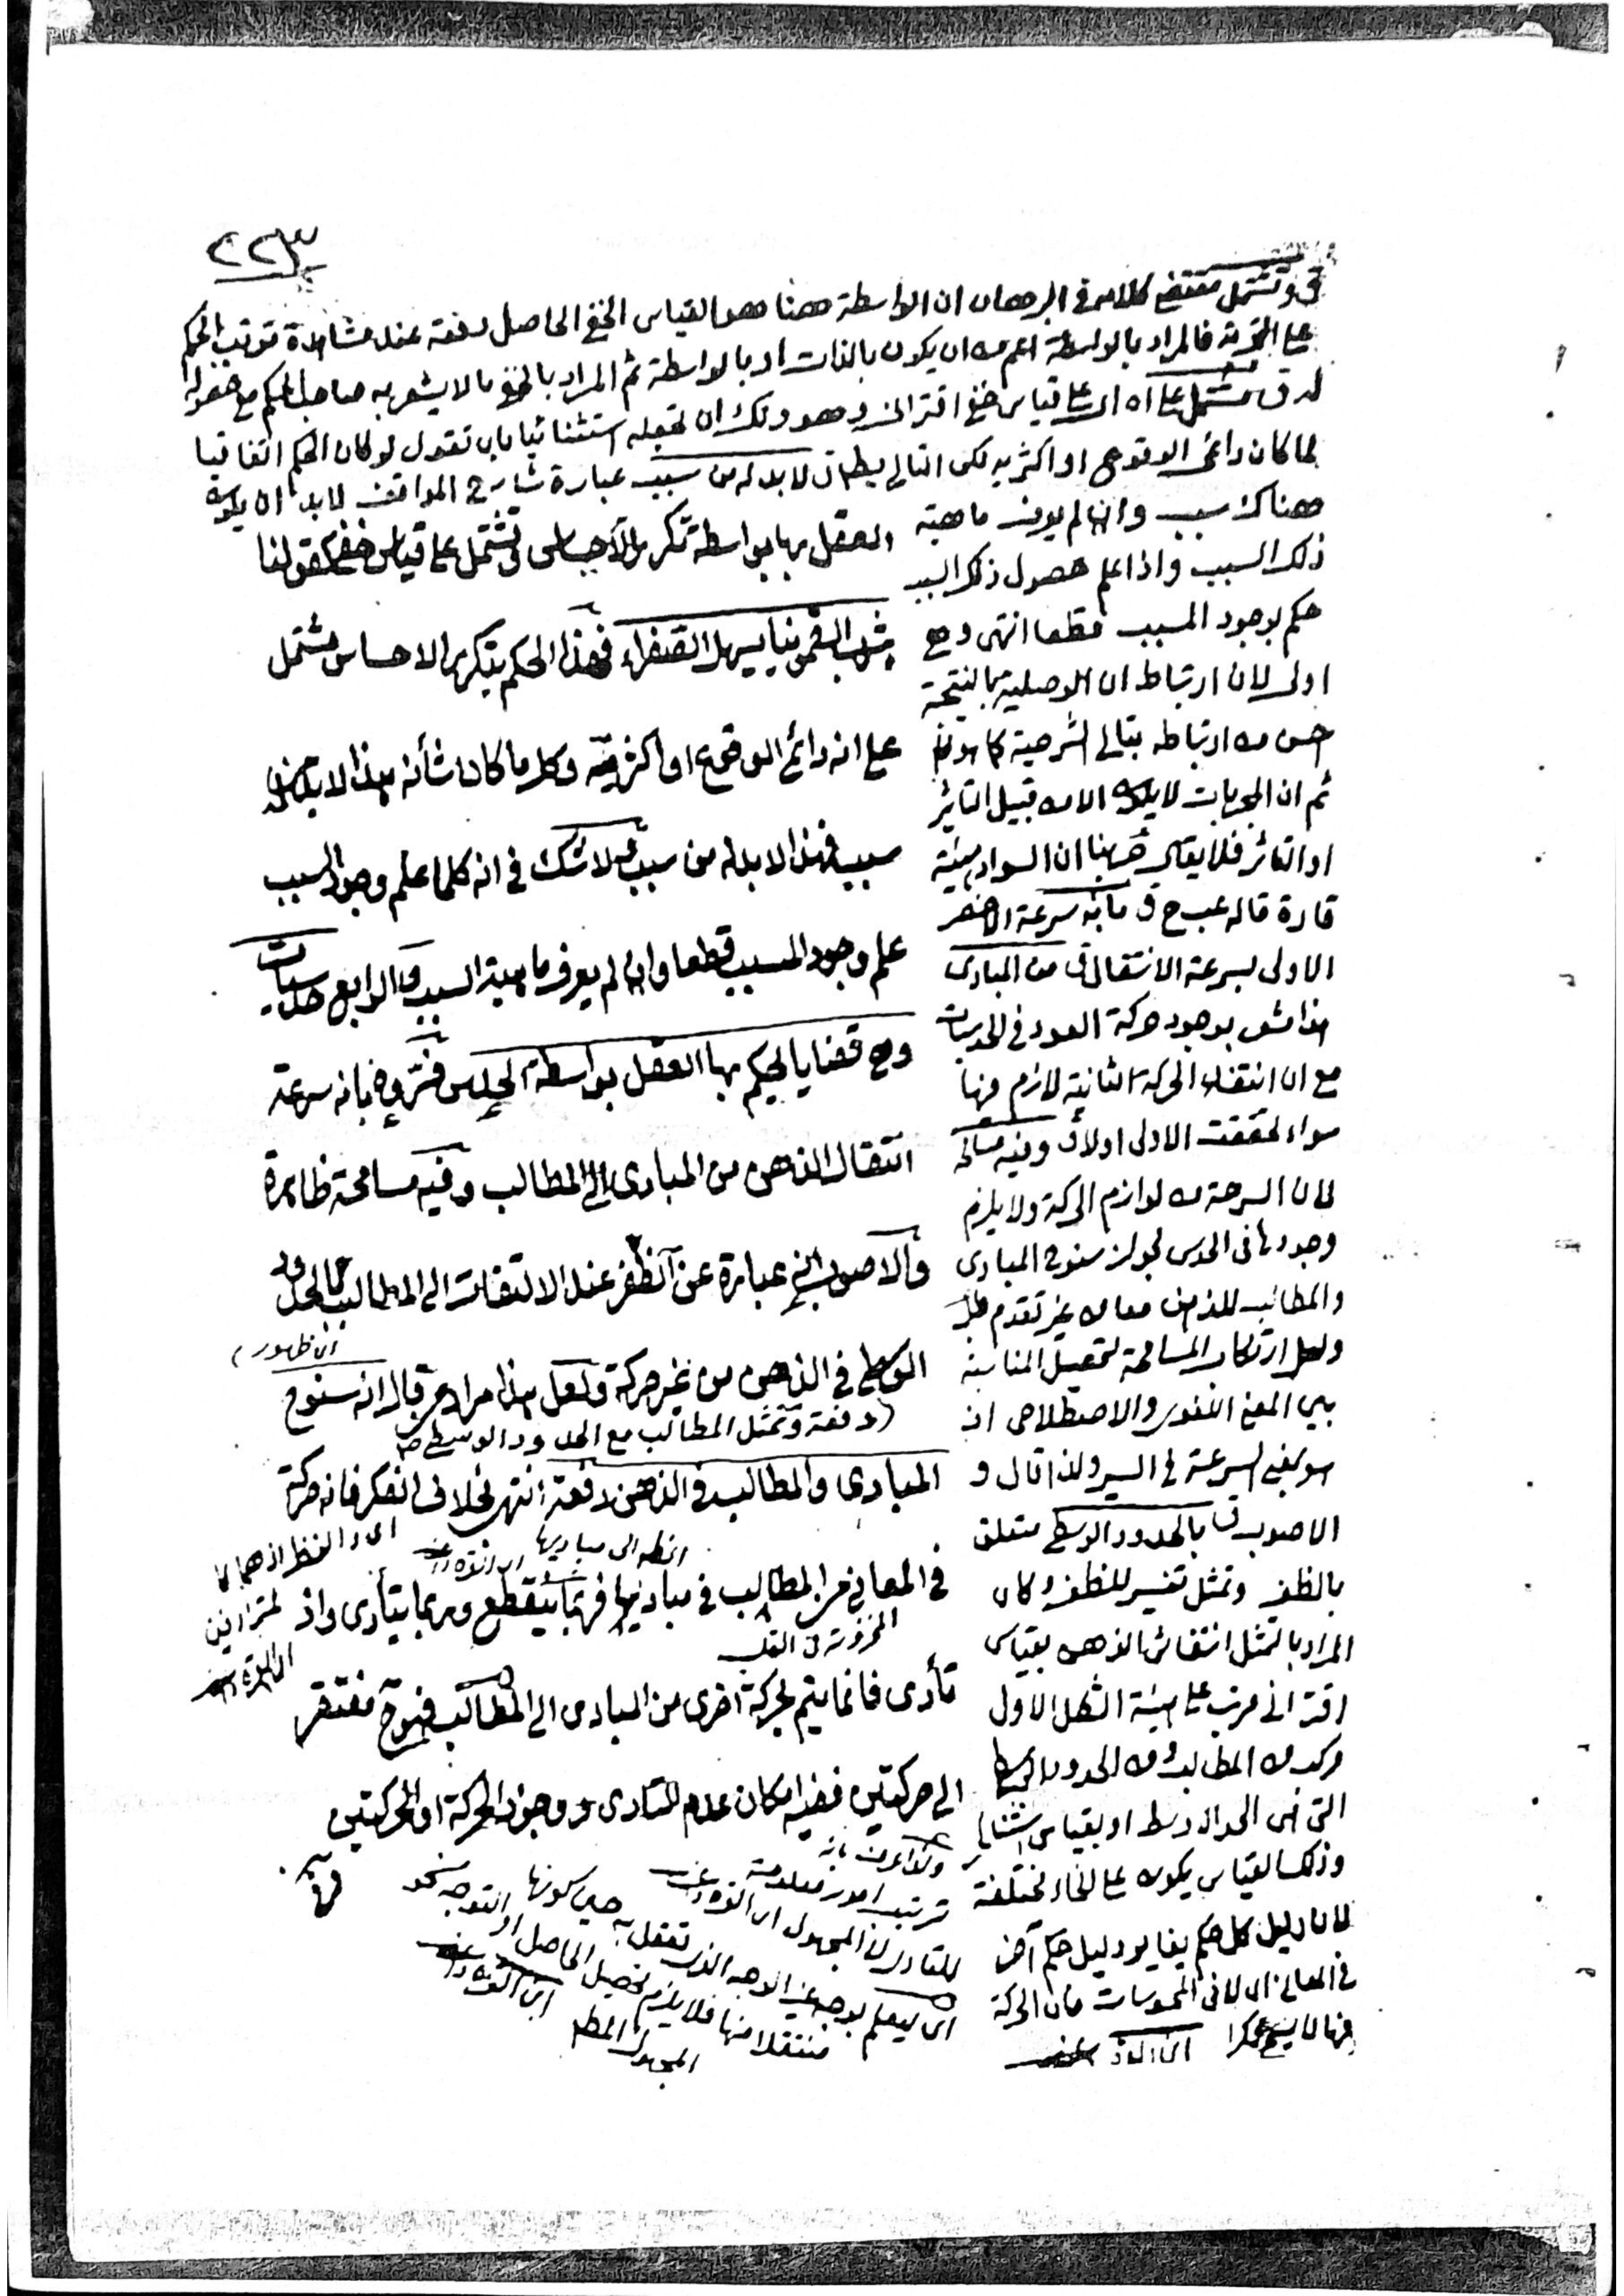 ٢٢٣
ق وتشتمل مقتضى كلامه في البرهان ان الواسطة ههنا هو القياس الخفي الحاصل دفعة عند مشاهدة ترتب الحكم
على التجربة فالمراد بالواسطة اعم من ان يكون بالذات او بالواسطة ثم المراد بالخفي ما لا يشعر به صاحب الحكم مع حصوله
له ق مشتمل على اه اي على قياس خفي اقتراني وهو ولك ان تجعله استثنائيا بان تقول لو كان الحكم اتفاقيا
لما كان دائمي الوقوع او اكثريه لكن التالي بط ق لا بد له من سبب عبارة شارح المواقف لا بد ان يكون
هناك سبب وان لم يعرف ماهية
ذلك السبب واذا علم حصول ذلك السبب
حكم بوجود المسبب قطعا انتهى وهي
اولى لان ارتباط ان الوصلية بالنتيجة
حس من ارتباطه بتالي الشرطية كما هو
ثم ان المجربات لا يكون الا من قبيل التاثير
او التاثر فلا يقال جربنا ان السواد هيئة
قارة قاله عبح ق بانه سرعة الاخصر
الاولى بسرعة الانتقال ق من المبادى
هذا مشعر بوجود حركة العود في الحدسيات
مع ان انتفاء الحركة الثانية لازم فيها
سواء تحققت الاولى اولا ق وفيه مسامحة
لان السرعة من لوازم الحركة ولا يلزم
وجودها في الحدس لجواز سنوح المبادى
والمطالب للذهن معا من غير تقدم
ولعل ارتكاب المسامحة لتحصيل المناسبة
بين المعنى اللغوي والاصطلاحي اذ
هو بمعنى السرعة في السير ولذا قال و
الاصوب ق بالحدود الوسطى متعلق
بالظفر وتمثل تفسير للظفر وكان
المراد بالتمثل انتقاش الذهن بقياس
اقتراني مرتب على هيئة الشكل الاول
مركب من المطالب ومن الحدود الوسطى
التي هي الحد الاوسط او بقياس استثنائي
وذلك القياس يكون على انحاء مختلفة
لان دليل كل حكم يغاير دليل حكم آخر
في المعاني اي لا في المحسوسات فان الحركة
فيها لا يسمى فكرا
العقل بها بواسطة تكرر الاحساس ق وتشتمل على قياس خفي كقولنا
شرب السقمونيا يسهل الصفراء فهذا الحكم بتكرر الاحساس مشتمل
على انه دائم الوقوع او اكثريه وكل ما كان شأنه هذا لا بد له من
سبب فهذا لا بد له من سبب ولا شك في انه كلما علم وجود السبب
علم وجود المسبب قطعا وان لم يعرف ماهية السبب والرابع حدسيات
وهي قضايا يحكم بها العقل بواسطة الحدس فسروه بانه سرعة
انتقال الذهن من المبادى الى المطالب وفيه مسامحة ظاهرة
والاصوب انه عبارة عن الظفر عند الالتفات الى المطالب بالحدود
الوسطى في الذهن من غير حركة ولعل هذا مراد من قال انه سنوح
اي ظهور
(دفعة وتمثل المطالب مع الحدود الوسطى
المبادى والمطالب في الذهن دفعة انتهى بخلاف الفكر فانه حركة
في المعاني من المطالب في مباديها فربما ينقطع وربما يتأدى واذ
المخزونة في القلب
تأدى فانما يتم بحركة اخرى من المبادى الى المطالب فهو ح مفتقر
الى حركتين ففيه امكان عدم التادى ووجود الحركة او الحركتين
ولذا عرف بانه
ترتيب امور معلومة
للتادى الى المجهول
اي ليعلم بوجه غير الوجه الذي تعقل به حين كونها
منتقلا منها فلا يلزم تحصيل الحاصل او التوجه نحو
المجهول المطلق